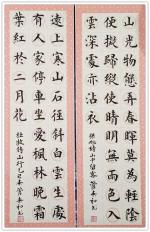 山光物態弄春暉莫為輕陰
便擬歸縱使晴明無雨色入
雲深處亦沾衣 張旭詩山中留客
遠上寒山石徑斜白雲生處
有人家停車坐愛楓林晚霜
葉紅於二月花 杜牧詩山行